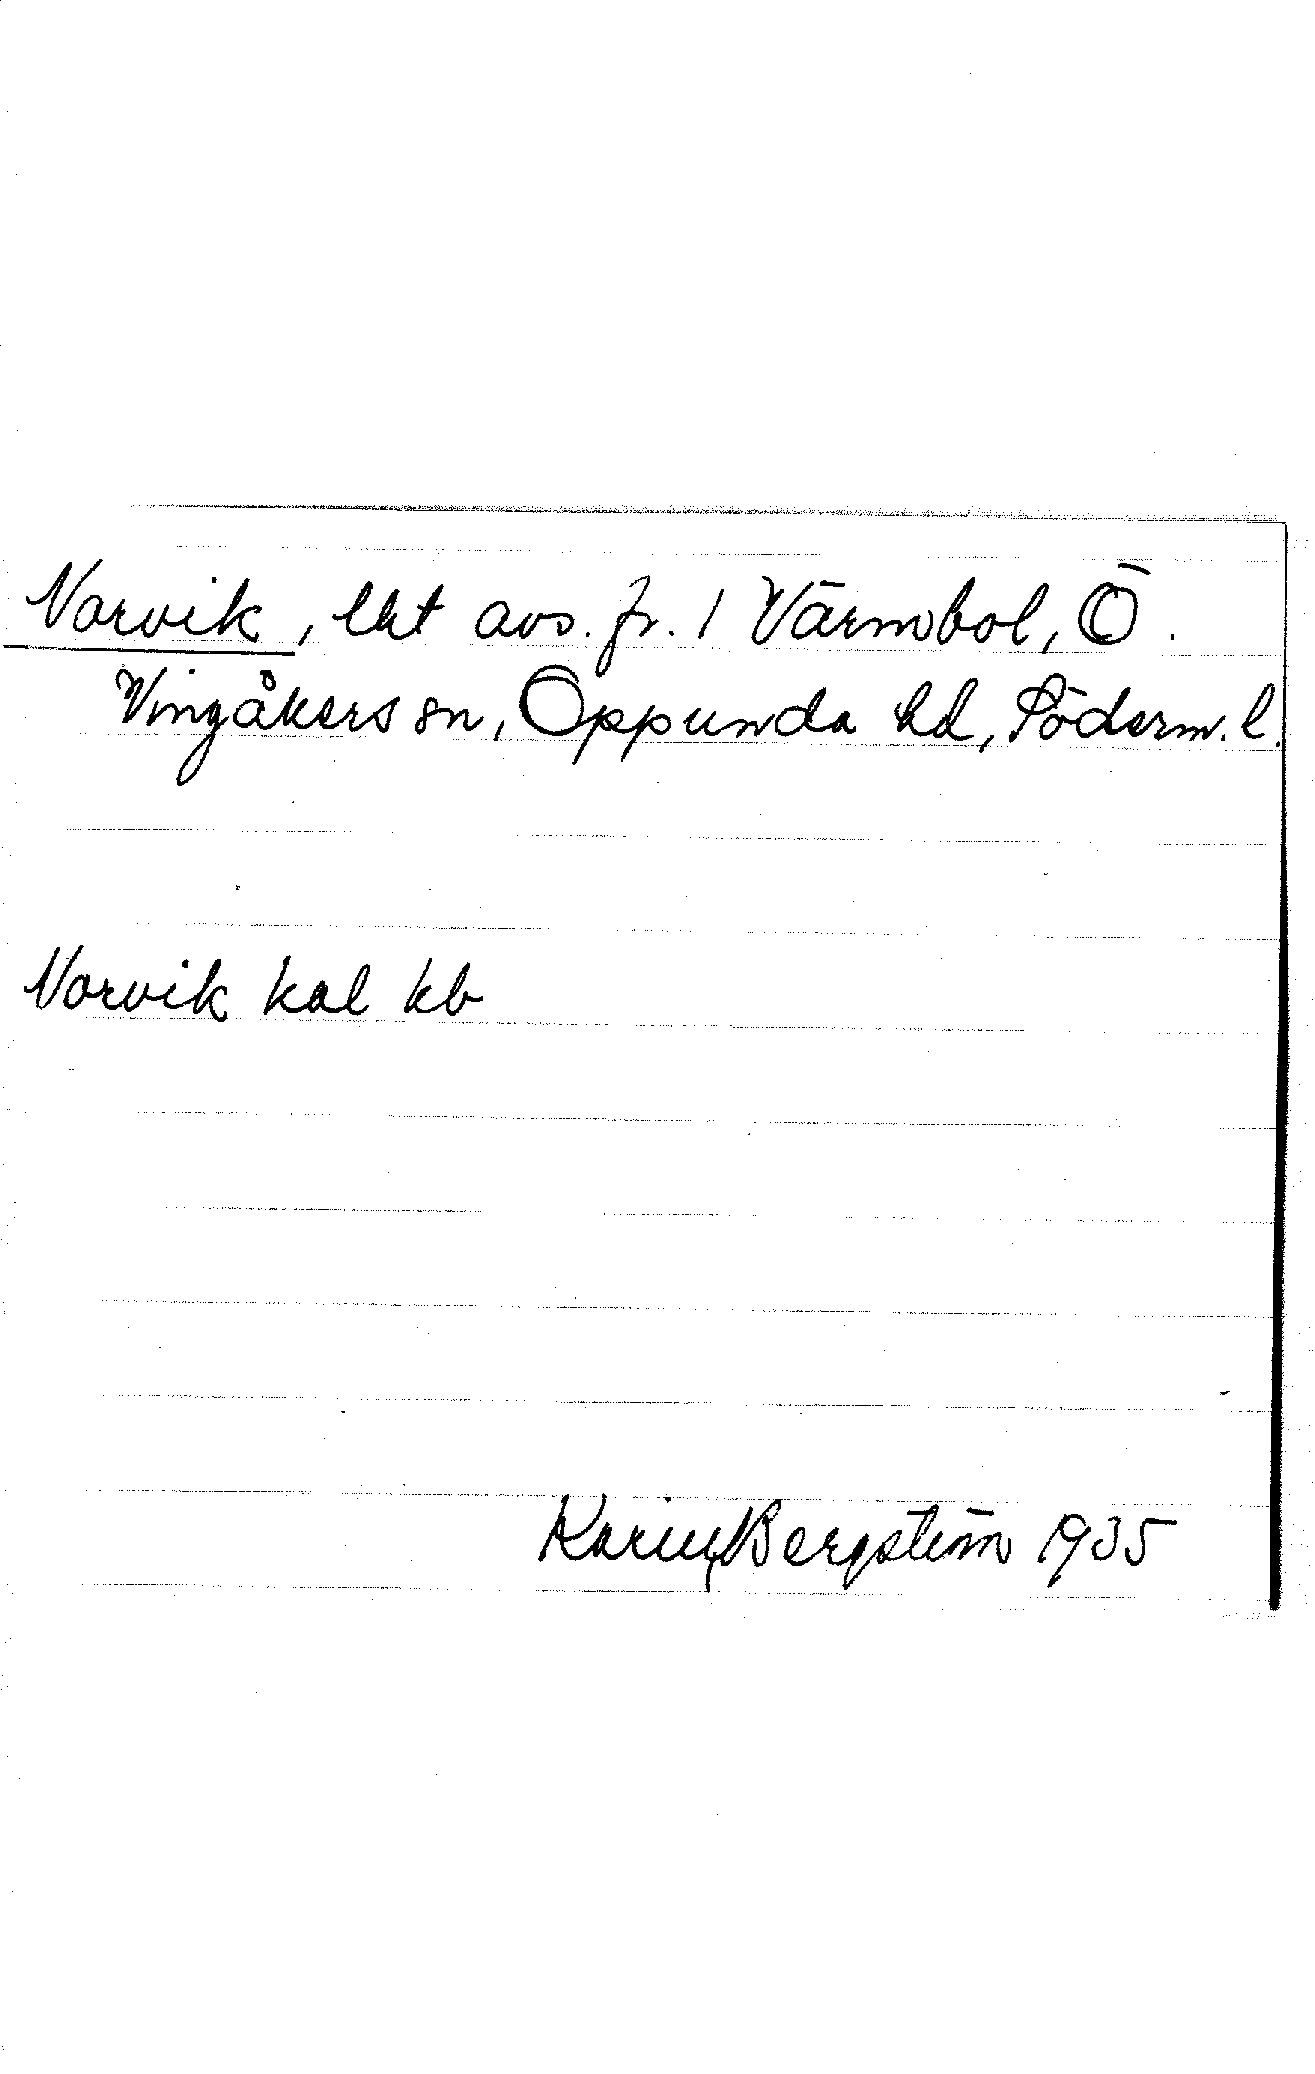 Narvik, lht avs. fr. 1 Värmbol, Ö.
Vingåkers sn, Oppunda hd, Söderm. l.
Narvik kal kb
Karin Bergström 1935